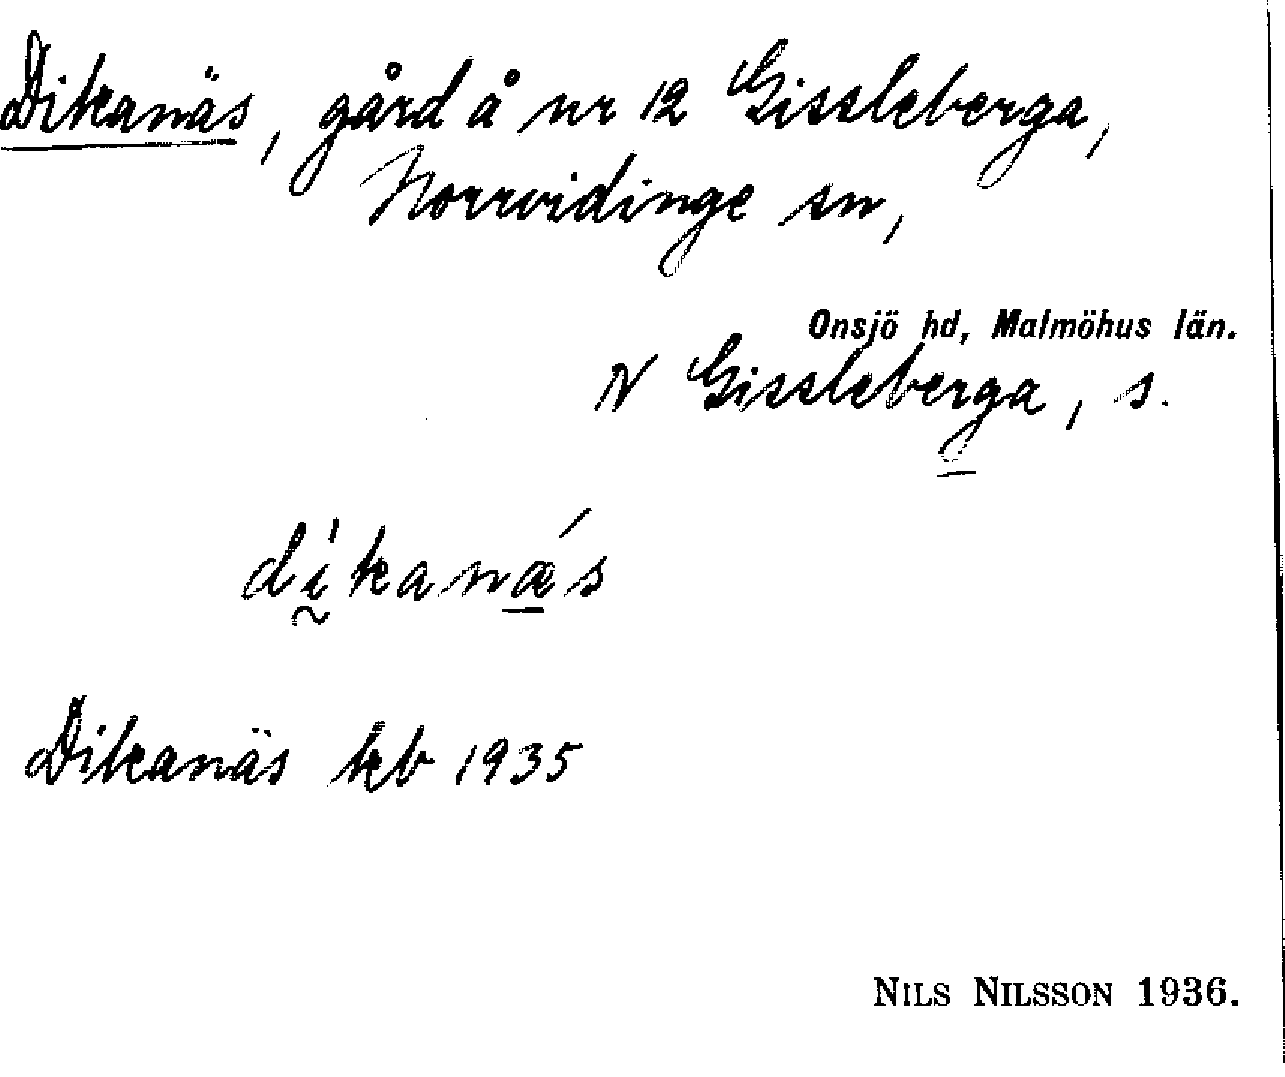 Dikanäs, gård å nr 12 Gissleberga,
Norrvidinge sn,
Onsjö hd, Malmöhus län.
N Gissleberga, s.
dikanæs
Dikanäs kb 1935
NILS NILSSON 1936.